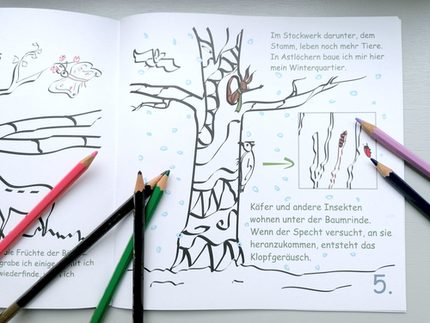 Im Stockwerk darunter, dem
Stamm, leben noch mehr Tiere.
In Astlöchern baue ich mir hier
mein Winterquartier.
Käfer und andere Insekten
wohnen unter der Baumrinde.
Wenn der Specht versucht, an sie
heranzukommen, entsteht das
Klopfgeräusch.
5.
die Früchte der
grabe ich einige
wiederfinde, ich